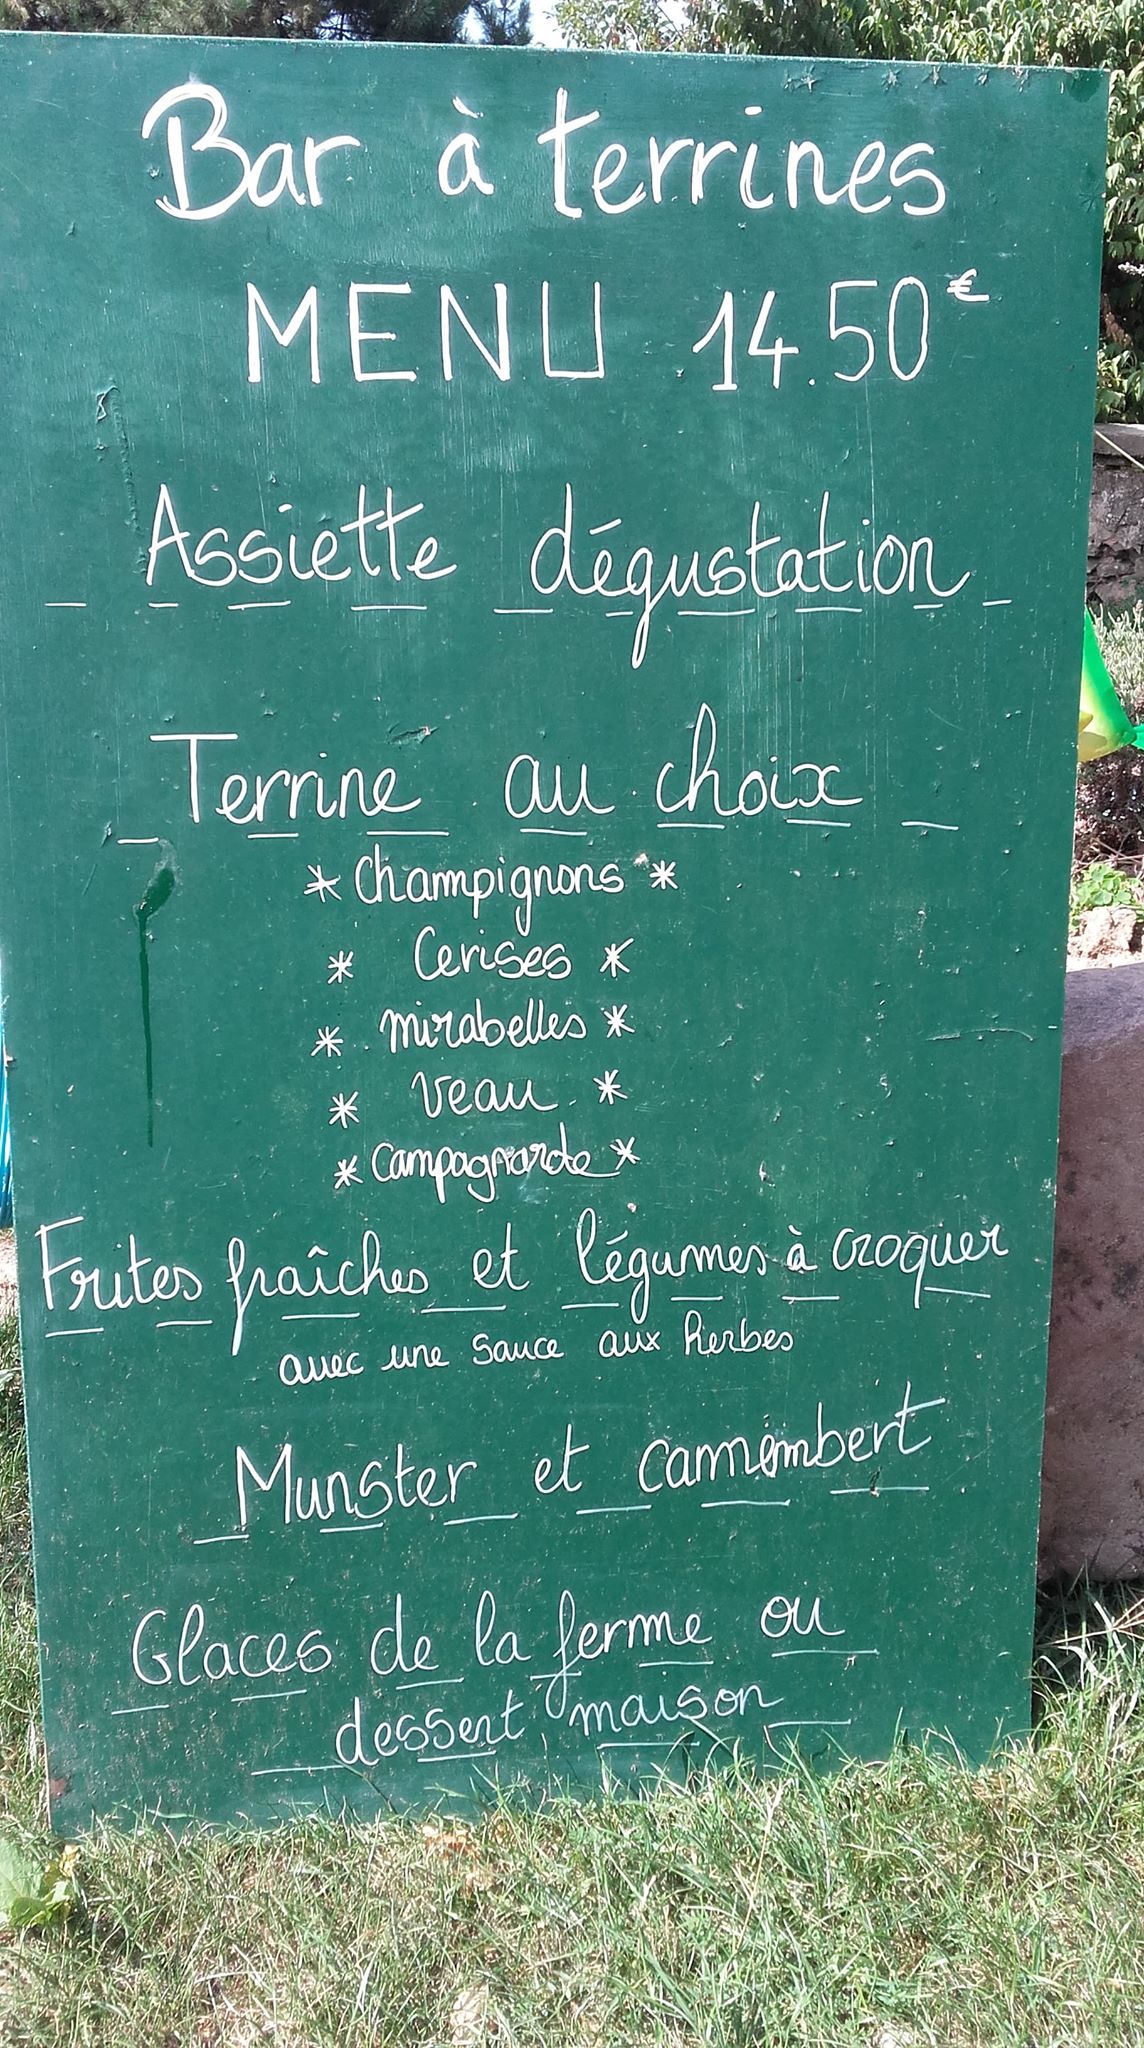 Bar à terrines
MENU 14.50€
Assiette dégustation
Terrine au choix
* Champignons *
* Cerises *
* mirabelles *
* Veau *
* Campagnarde *
Frites fraîches et légumes à croquer
avec une sauce aux herbes
Munster et camembert
Glaces de la ferme ou
dessert maison